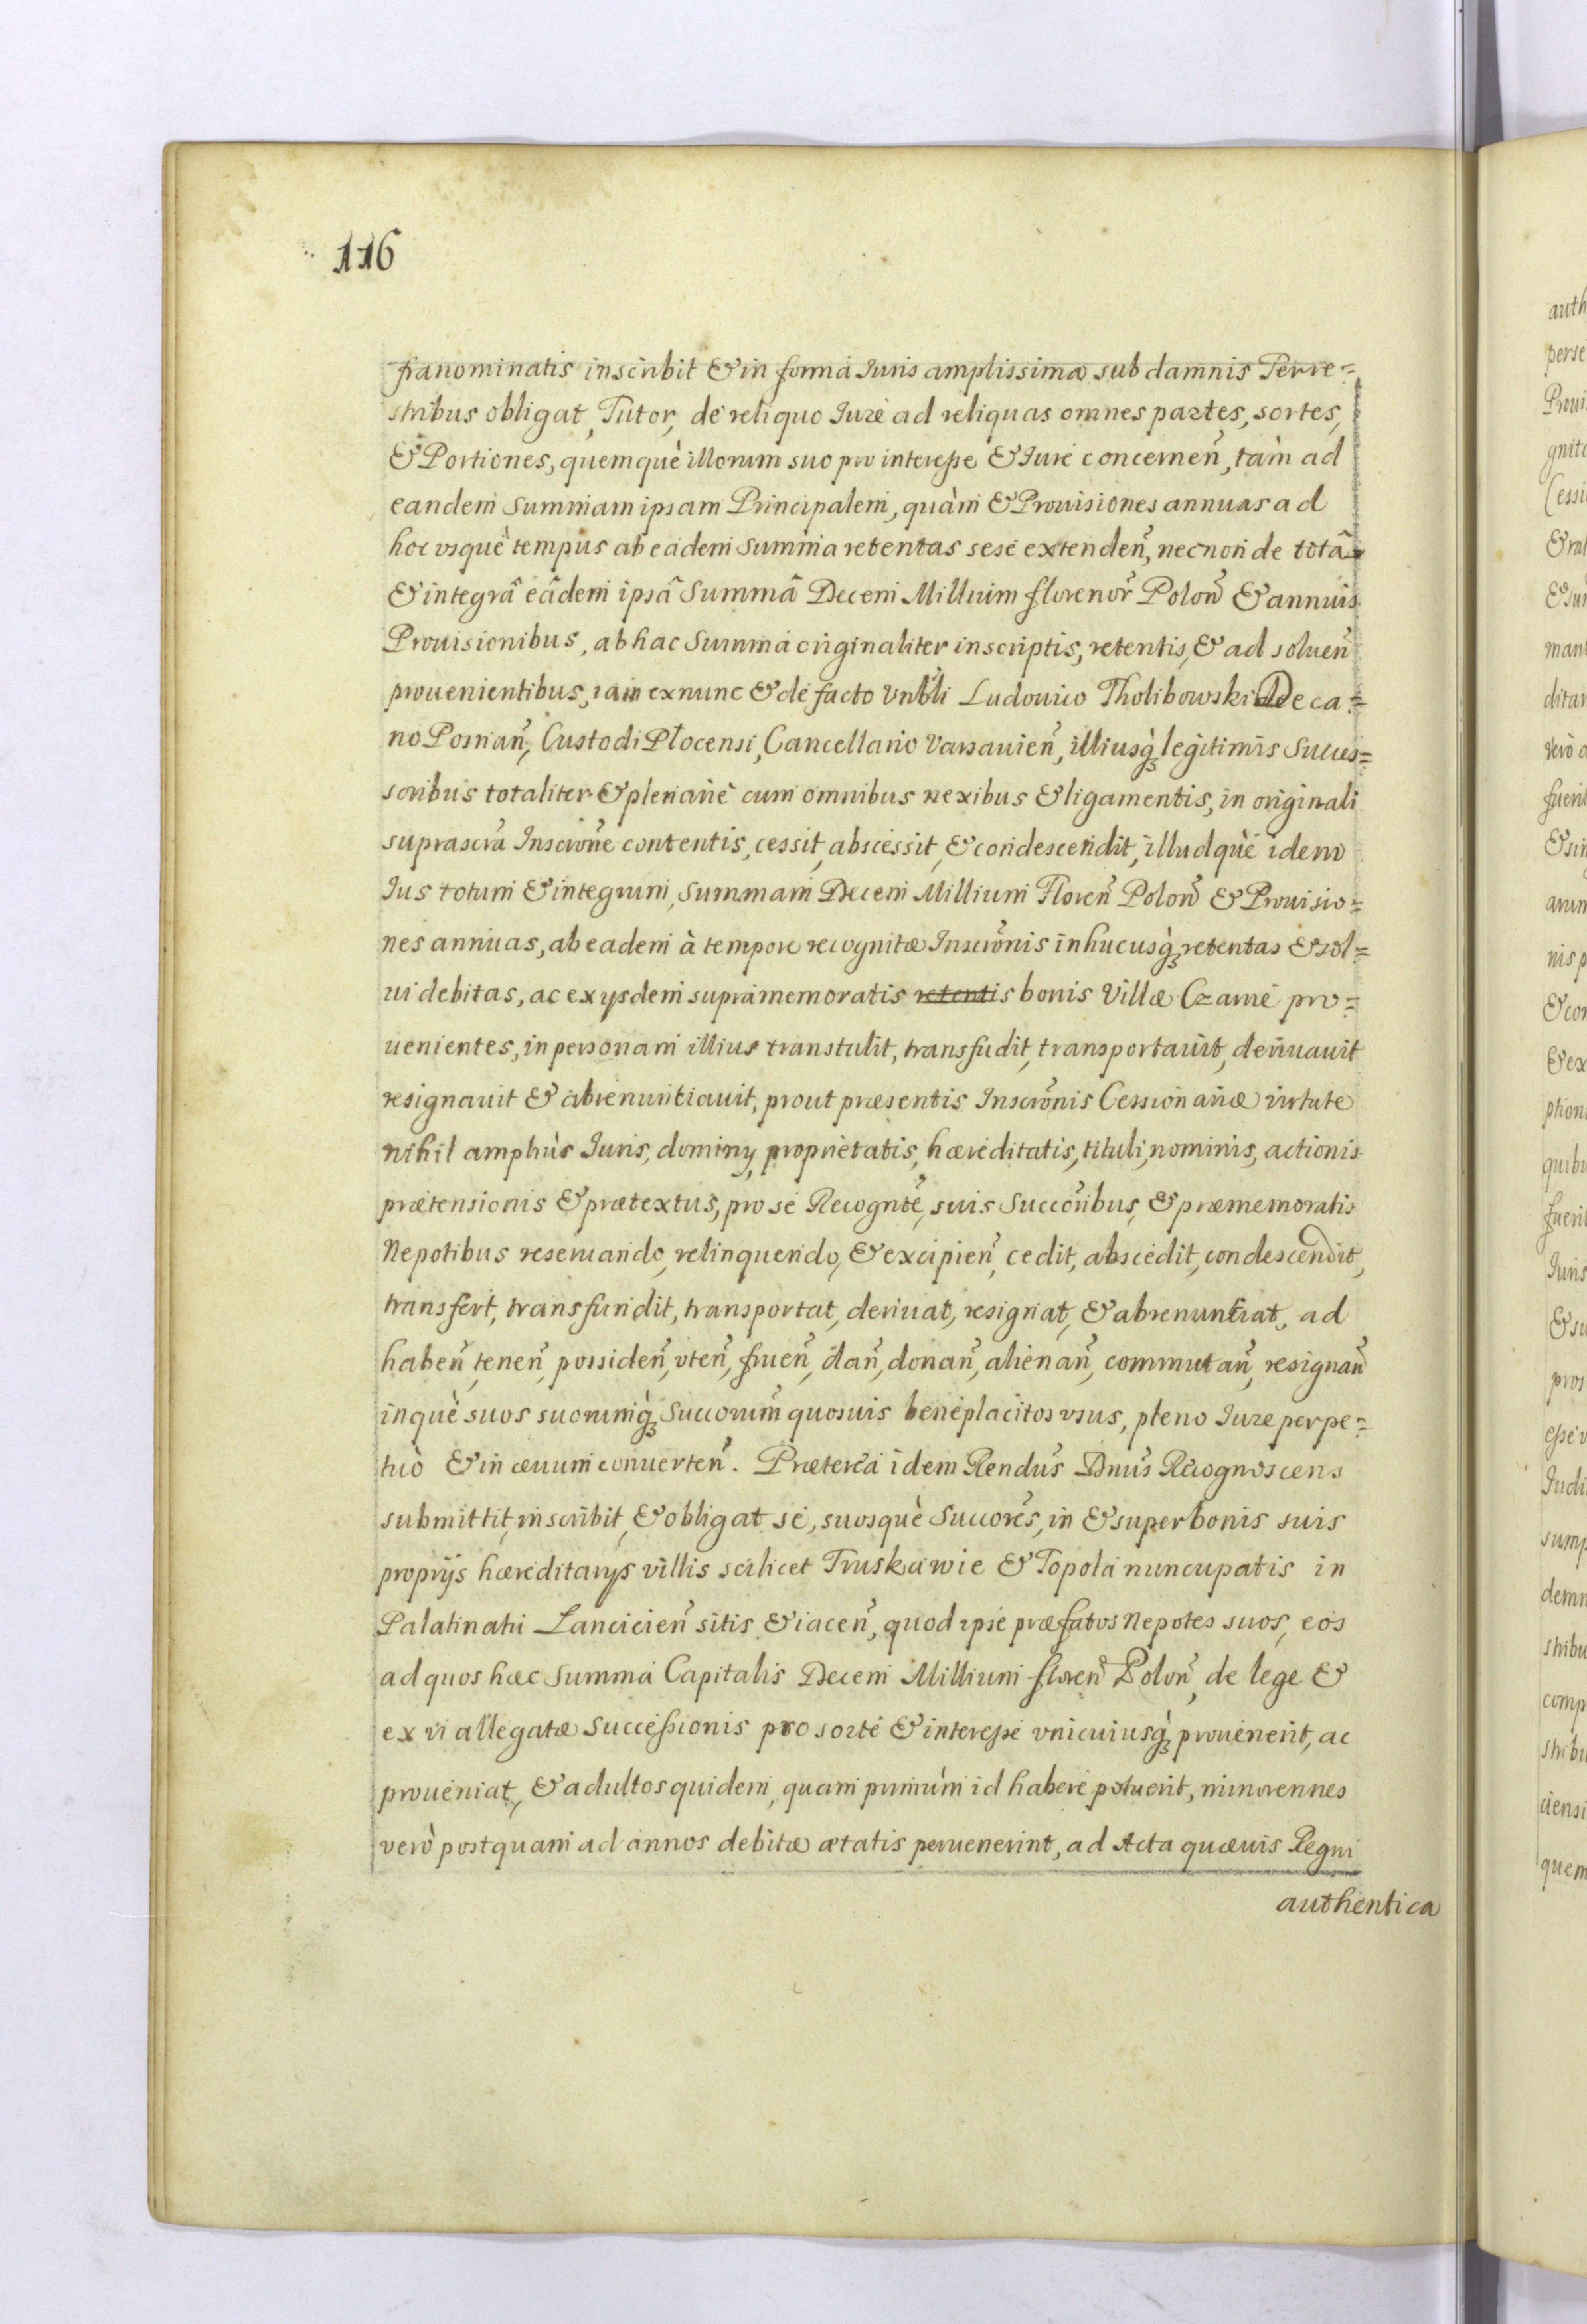 116
franominatis inscribit & in forma Iuris amplissima sub damnis Terre=
stribus obligat, Tutor, de reliquo Iure ad reliquas omnes partes, sortes,
& Portiones, quemquè illorum suo pro interesse & Iure concernen̄, tàm ad
eandem Summam ipsam Principalem, quàm & Prouisiones annuas ad
hoc vsquè tempus ab eadem Summa retentas sese extenden̄, necnon de totâ
& integrâ eâdem ipsâ Summâ Decem Millium florenor̄ Polon̄ & annuis
Prouisionibus, ab hac Summa originaliter inscriptis, retentis, & ad soluen̄
prouenientibus, iam ex nunc & de facto Vnbli Ludouico Tholibowski Deca=
no Posnan̄, Custodi Płocensi, Cancellario Varsauien̄, illiusq̀ legitimis Succes=
soribus totaliter & plenariè cum omnibus nexibus & ligamentis, in originali
suprascrā Inscrōne contentis, cessit, abscessit, & condescendit, illudquè idem
Ius totum & integrum, Summam Decem Millium Floren̄ Polon̄ & Prouisio=
nes annuas, ab eadem à tempore recognitæ Inscrōnis inhucusq̀ retentas & sol=
ui debitas, ac ex ysdem supramemoratis retentis bonis Villæ Czarne pro=
uenientes, in personam illius transtulit, transfudit, transportauit, deriuauit
resignauit & abrenuntiauit, prout præsentis Inscrōnis Cessionariæ virtute
nihil ampliùs Iuris, dominy, proprietatis, hæreditatis, tituli, nominis, actionis
prætensionis & prætextus, pro se Recognte, suis Succoribus, & præmemoratis
Nepotibus reseruando, relinquendo, & excipien̄, cedit, abscedit, condescendit,
transfert, transfundit, transportat, deriuat, resignat, & abrenuntiat, ad
haben̄, tenen̄, possiden̄, vten̄, fruen̄, dan̄, donan̄, alienan̄, commutan̄, resignan̄
inquè suos suorumq̀ Succorum̄ quosuis beneplacitos vsus, pleno Iure perpe=
tuò & in æuum conuerten̄. Præterea idem Rendus̄ Dnus̄ Recognoscens
submittit, inscribit, & obligat se, suosquè Succores̄, in & super bonis suis
proprijs hæreditarys villis scilicet Truskawie & Topola nuncupatis in
Palatinatu Lancicien̄ sitis & iacen̄, quod ipse præfatos Nepotes suos, eos
ad quos hæc Summa Capitalis Decem Millium floren̄ Polon̄, de lege &
ex vi allegatæ Successionis pro sorte & interesse vnicuiusq̀ prouenerit, ac
proueniat, & adultos quidem, quam primùm id habere potuerit, minorennes
verò postquam ad annos debitæ ætatis peruenerint, ad Acta quæuis Regni
authentica